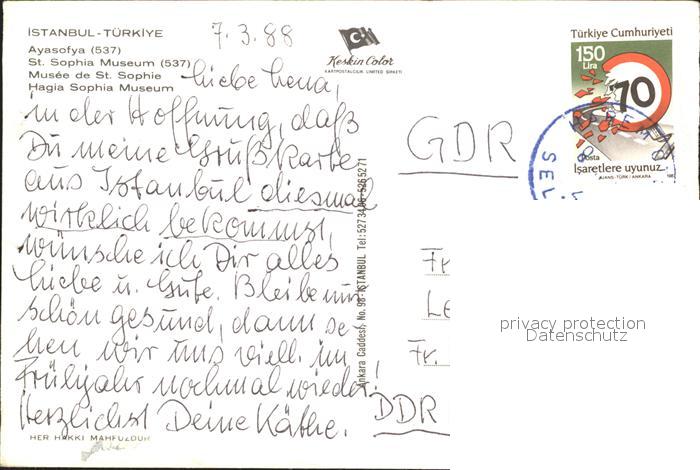 İSTANBUL-TÜRKİYE
Ayasofya (537)
St. Sophia Museum (537)
Musée de St. Sophie
Hagia Sophia Museum
7.3.88
Keskin Color
KARTPOSTALCILIK LIMITED ŞİRKETİ
Türkiye Cumhuriyeti
150
Lira
70
Posta
İşaretlere uyunuz
AJANS-TÜRK/ANKARA
SEL
Liebe Lena,
in der Hoffnung, daß
Du meine Grußkarte
aus Istanbul diesmal
wirklich bekommst,
wünsche ich Dir alles
Liebe u. Gute. Bleibe nur
schön gesund, dann se-
hen wir uns viell. im
Frühjahr nochmal wieder!
Herzlichst Deine Käthe.
HER HAKKI MAHFUZDUR
Ankara Caddesi, No. 98-İSTANBUL Tel:
GDR
Fr
Le
Fr.
DDR
privacy protection
Datenschutz